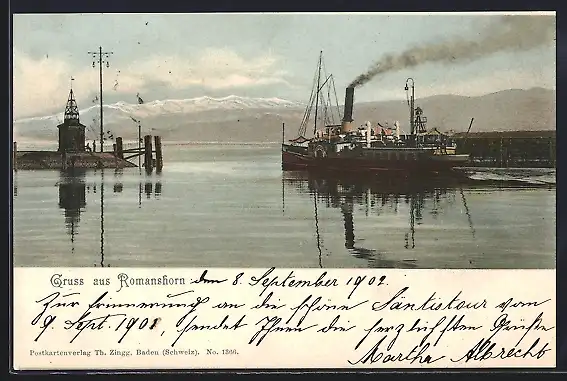 Gruss aus Romanshorn den 8. September 1902.
Zur Erinnerung an die schöne Säntistour vom
9. Sept. 1901, sendet Ihnen die herzlichsten Grüße
Martha Albrecht
Postkartenverlag Th. Zingg. Baden (Schweiz). No. 1366.